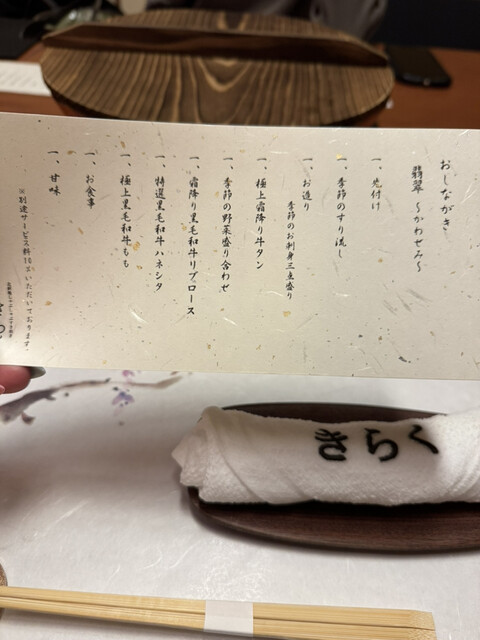 おしながき
翡翠 〜かわせみ〜
一、先付け
一、季節のすり流し
一、お造り
季節のお刺身三点盛り
一、極上霜降り牛タン
一、季節の野菜盛り合わせ
一、霜降り黒毛和牛リブロース
一、特選黒毛和牛ハネシタ
一、極上黒毛和牛もも
一、お食事
一、甘味
※別途サービス料10%いただいております
きらく